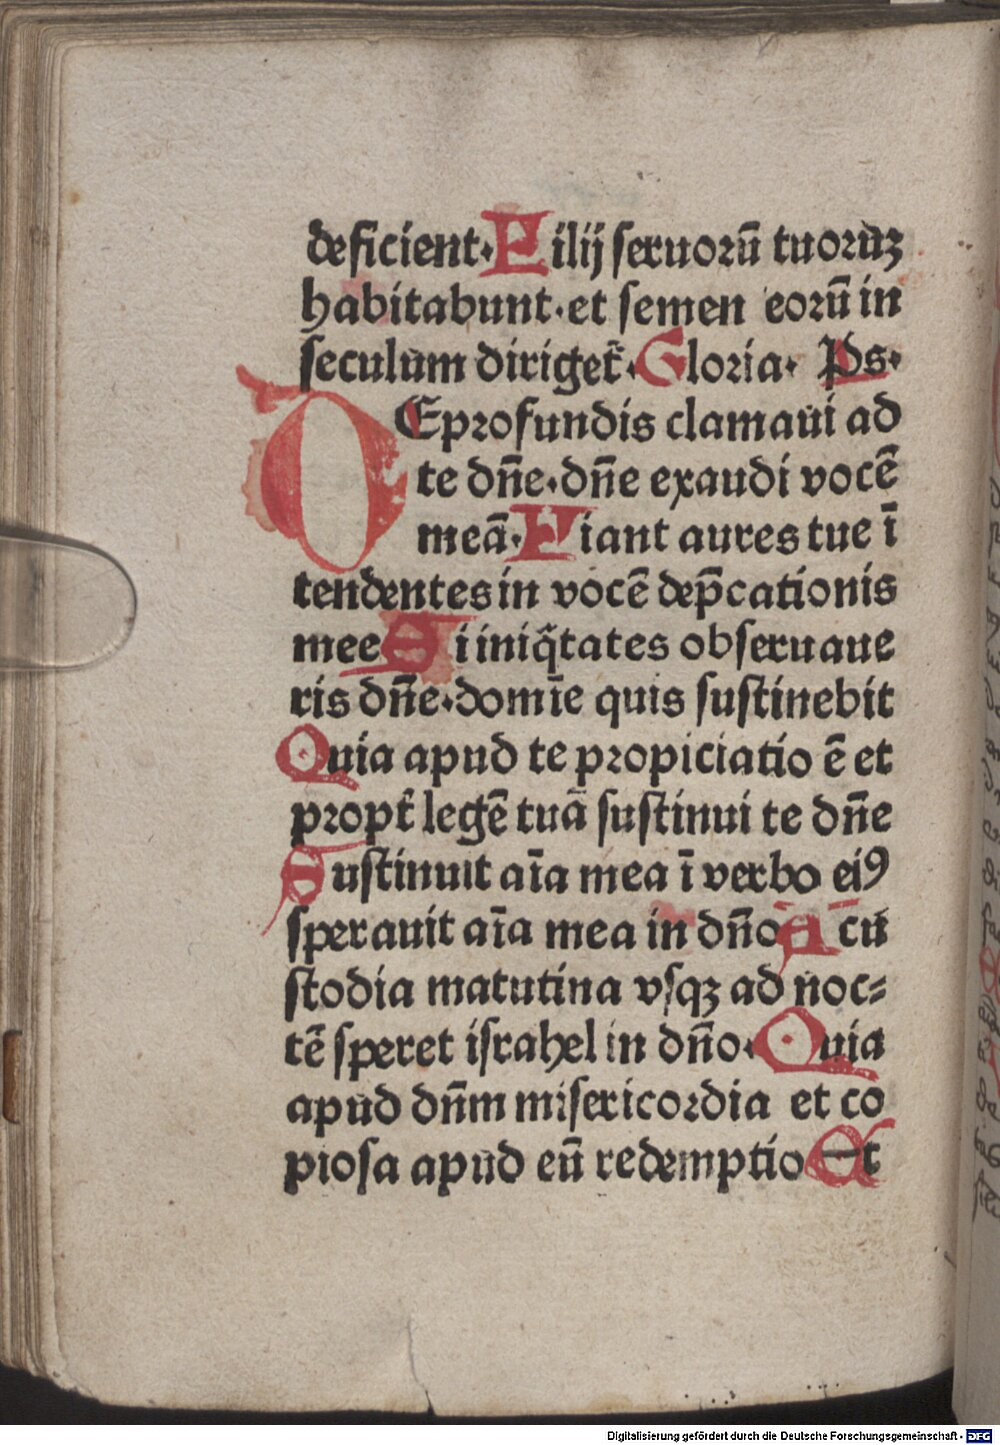 deficient. Filij seruorū tuoruꝫ
habitabunt. et semen eorū in
seculum dirigeť. Gloria. Ps.
DEprofundis clamaui ad
te dn̄e. dn̄e exaudi vocē
meā. Fiant aures tue ī
tendentes in vocē dep̄cationis
mee Si iniq̄tates obseruaue
ris dn̄e. domīe quis sustinebit
Quia apud te propiciatio ē et
propť legē tuā sustinui te dn̄e
Sustinuit aīa mea ī verbo eiꝰ
sperauit aīa mea in dn̄o A cu
stodia matutina vsqꝫ ad noc⸗
tē speret israhel in dn̄o. Quia
apud dn̄m misericordia et co
piosa apud eū redemptio Et
Digitalisierung gefördert durch die Deutsche Forschungsgemeinschaft - DFG